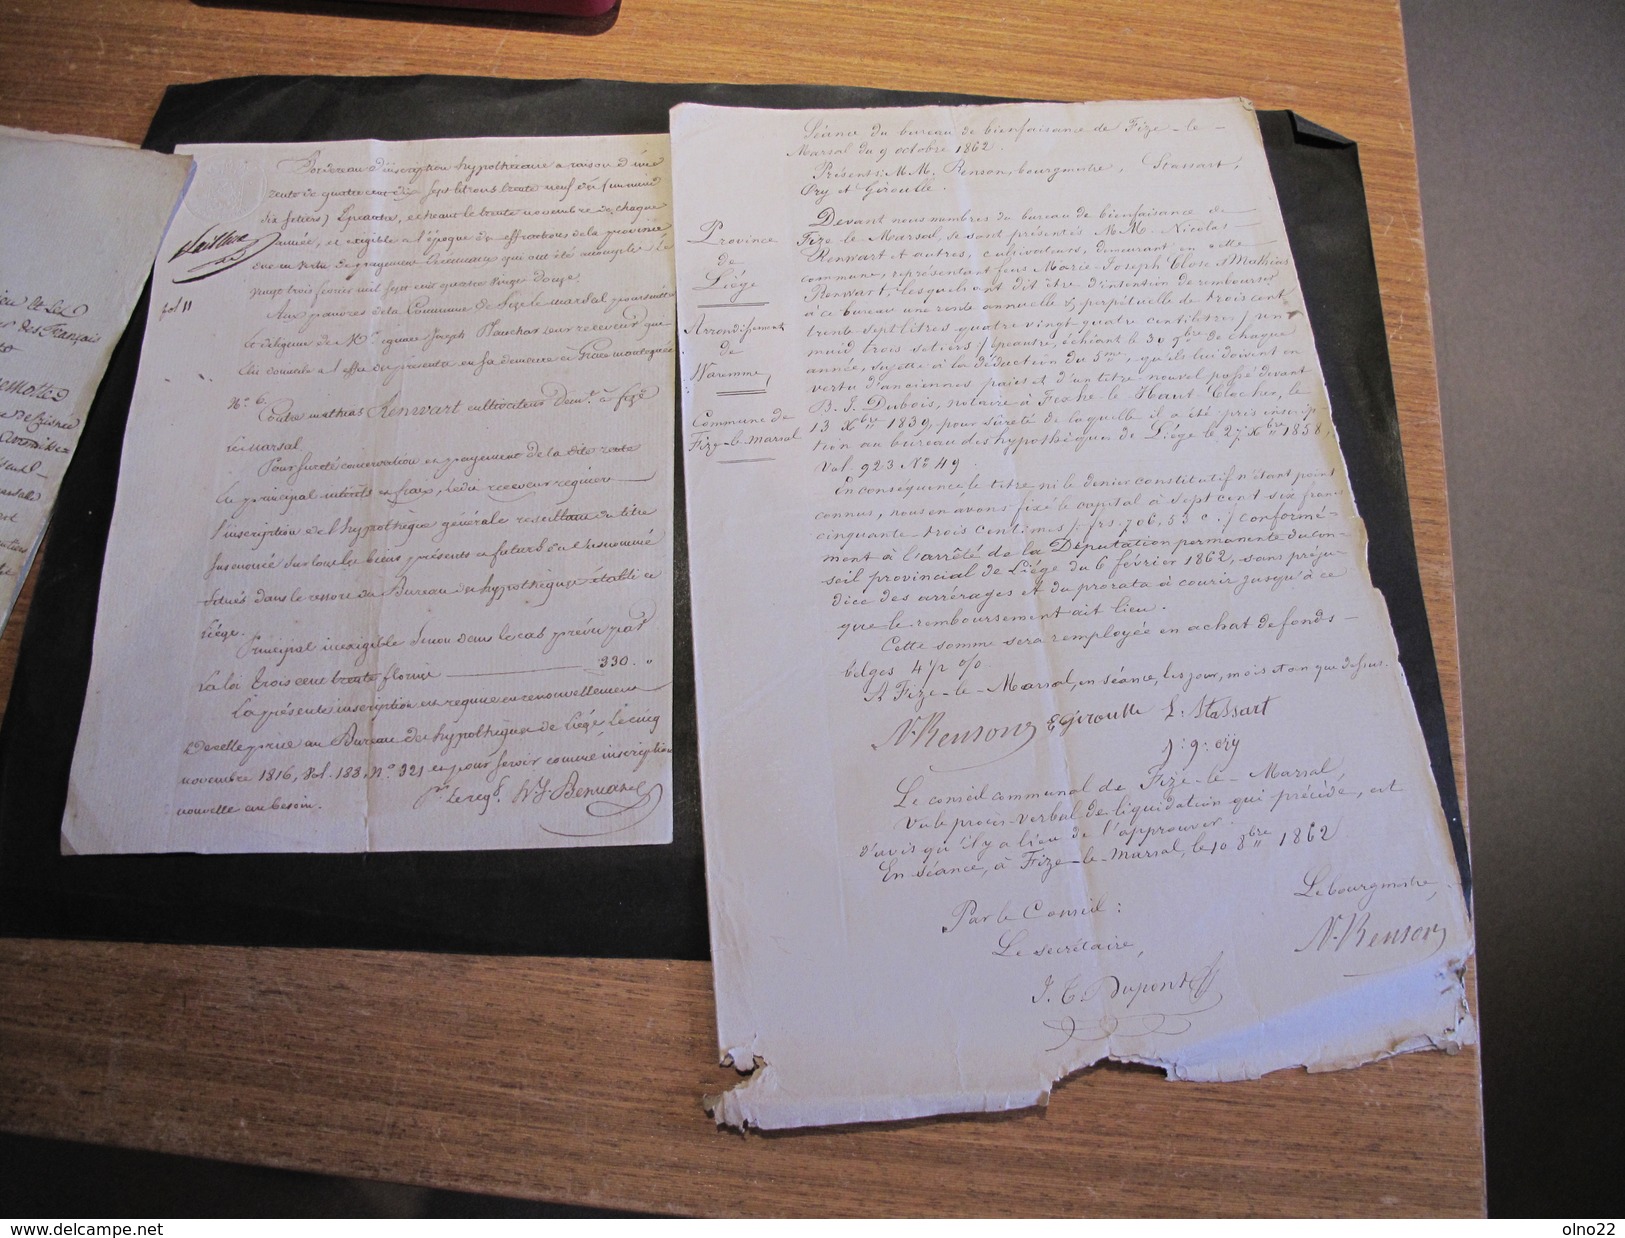 Bordereau d'inscription hypothécaire a raison d'une
rente de quatre cent sept litrons trente neuf du un muid
six setiers) Epeautre, echéant le trente novembre de chaque
année, et exigible a l'époque des effractions de la province
ou en vertu de payement qui ont été accomplis le
vingt trois février mil sept cent quatre vingt douze.
fol 11
Aux pauvres de la Commune de Fize le marsal poursuite
et diligence de Mr. ignace joseph Plauchar leur receveur
élu domicile a l'effet du présent en sa demeure à
N.o 6.
Contre mathias Renwart cultivateur dem.t a fize
le marsal
Pour sureté conservation et payement de la dite rente
en principal intérêts et fraix, ledit receveur requiert
l'inscription de l'hypothèque générale resultant du titre
susenoncé sur tous les biens présents et futurs du susnommé
situés dans le ressort du Bureau des hypothèques établi a
Liége.
Principal inexigible sinon dans le cas prévu par
la loi trois cent trente florins 330. "
La présente inscription est requise en renouvellement
de celle prise au Bureau des hypothèques de Liége le cinq
novembre 1816, Vol. 183, N.o 321 et pour servir comme inscription
nouvelle au besoin.
des Français
Séance du bureau de bienfaisance de Fize-le-
Marsal du 9 octobre 1862.
Présents: M.M. Renson, bourgmestre, Stassart,
Ory et Géroulle.
Province
de
Liége
Arrondissement
de
Waremme
Commune de
Fize-le-Marsal
Devant nous membres du bureau de bienfaisance de
Fize-le-Marsal, se sont présentés M.M. Nicolas
Renwart et autres, cultivateurs, demeurant en cette
commune, représentant feus Marie-Joseph Close & Mathias
Renwart, lesquels ont dit être d'intention de rembourser
à ce bureau une rente annuelle & perpétuelle de trois cent
trente-sept litres quatre vingt-quatre centilitres / un
muid trois setiers / épeautre, échéant le 30 9bre de chaque
année, sujette à la déduction du 5me, qu'ils lui doivent en
vertu d'anciennes paies et d'un titre nouvel passé devant
B. J. Dubois, notaire à Fexhe-le-Haut-Clocher, le
13 Xbre 1839, pour sûreté de laquelle il a été pris inscrip-
tion au bureau des hypothèques de Liége le 27 Xbre 1858,
Vol. 923 No 49.
En conséquence, le titre ni le denier constitutif n'étant point
connus, nous en avons fixé le capital à sept cent six francs
cinquante-trois centimes /: frs. 706,53 c. :/ conformé-
ment à l'arrêté de la Députation permanente du con-
seil provincial de Liége du 6 février 1862, sans préju-
dice des arrérages et du prorata à courir jusqu'à ce
que le remboursement ait lieu.
Cette somme sera remployée en achat de fonds
belges 4 1/2 o/o.
A Fize-le-Marsal, en séance, les jour, mois et an que dessus.
N. Renson EGéroulle L. Stassart
J. g. ory
Le conseil communal de Fize-le-Marsal,
Vu le procès-verbal de liquidation qui précède, est
d'avis qu'il y a lieu de l'approuver.
En séance, à Fize-le-Marsal, le 10 8bre 1862
Le bourgmestre,
Par le Conseil:
N. Renson
Le secrétaire,
J. C. Dupont
delcampe.net
olno22